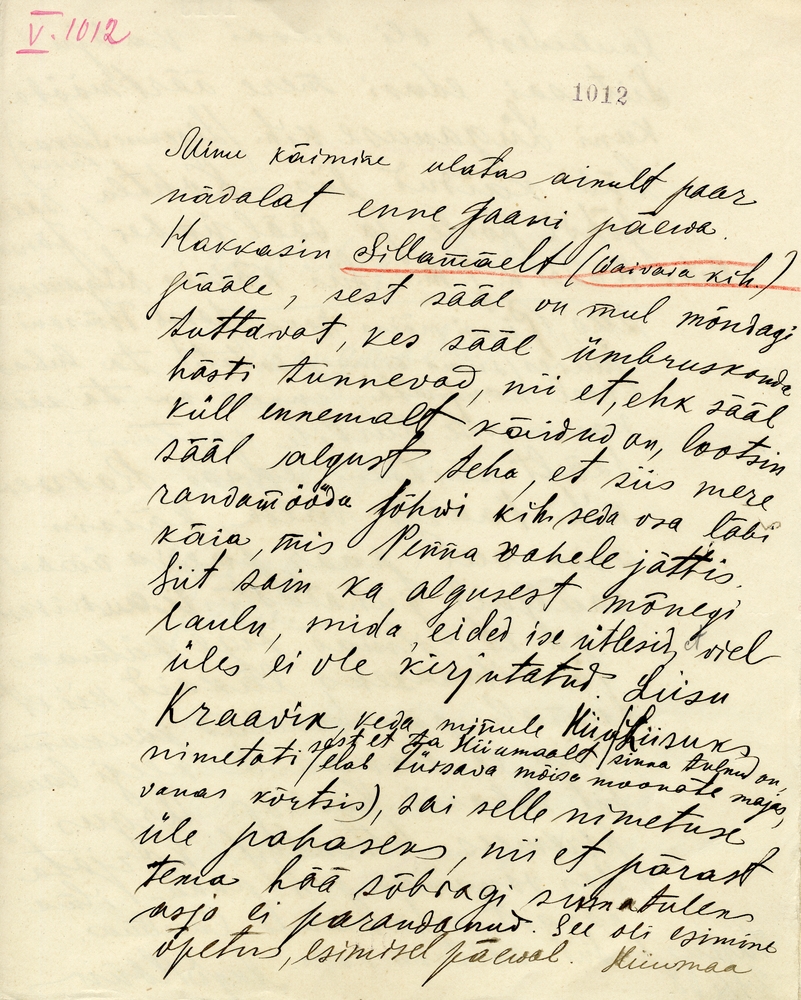 V. 1012
1012
Minu käimine ulatas ainult paar
nädalat enne Jaani päewa.
Hakkasin Sillamäelt (Waivara kih.)
pääle, sest sääl on mul mõndagi
tuttavat, kes sääl ümbruskonda
hästi tunnevad, nii et, ehk sääl
küll ennemalt käidud on, lootsin
sääl algust teha, et siis mere
randamööda Jõhwi kih. seda osa läbi
käia, mis Penna wahele jättis.
Siit sain ka algusest mõnegi
laulu, mida, eided ise ütlesid, et viel
üles ei ole kirjutatud. Liisu
Kraavik, keda minule Hiiu Liisuks
nimetati, sest et ta Hiiumaalt sinna tulnud on,
(elab Türsava mõisa moonate majas,
vanas kõrtsis), sai selle nimetuse
üle pahaseks, nii et pärast
tema hää sõbragi sinnatulek
asja ei parandanud. See oli esimine
õpetus, esimisel päewal. Hiiumaa